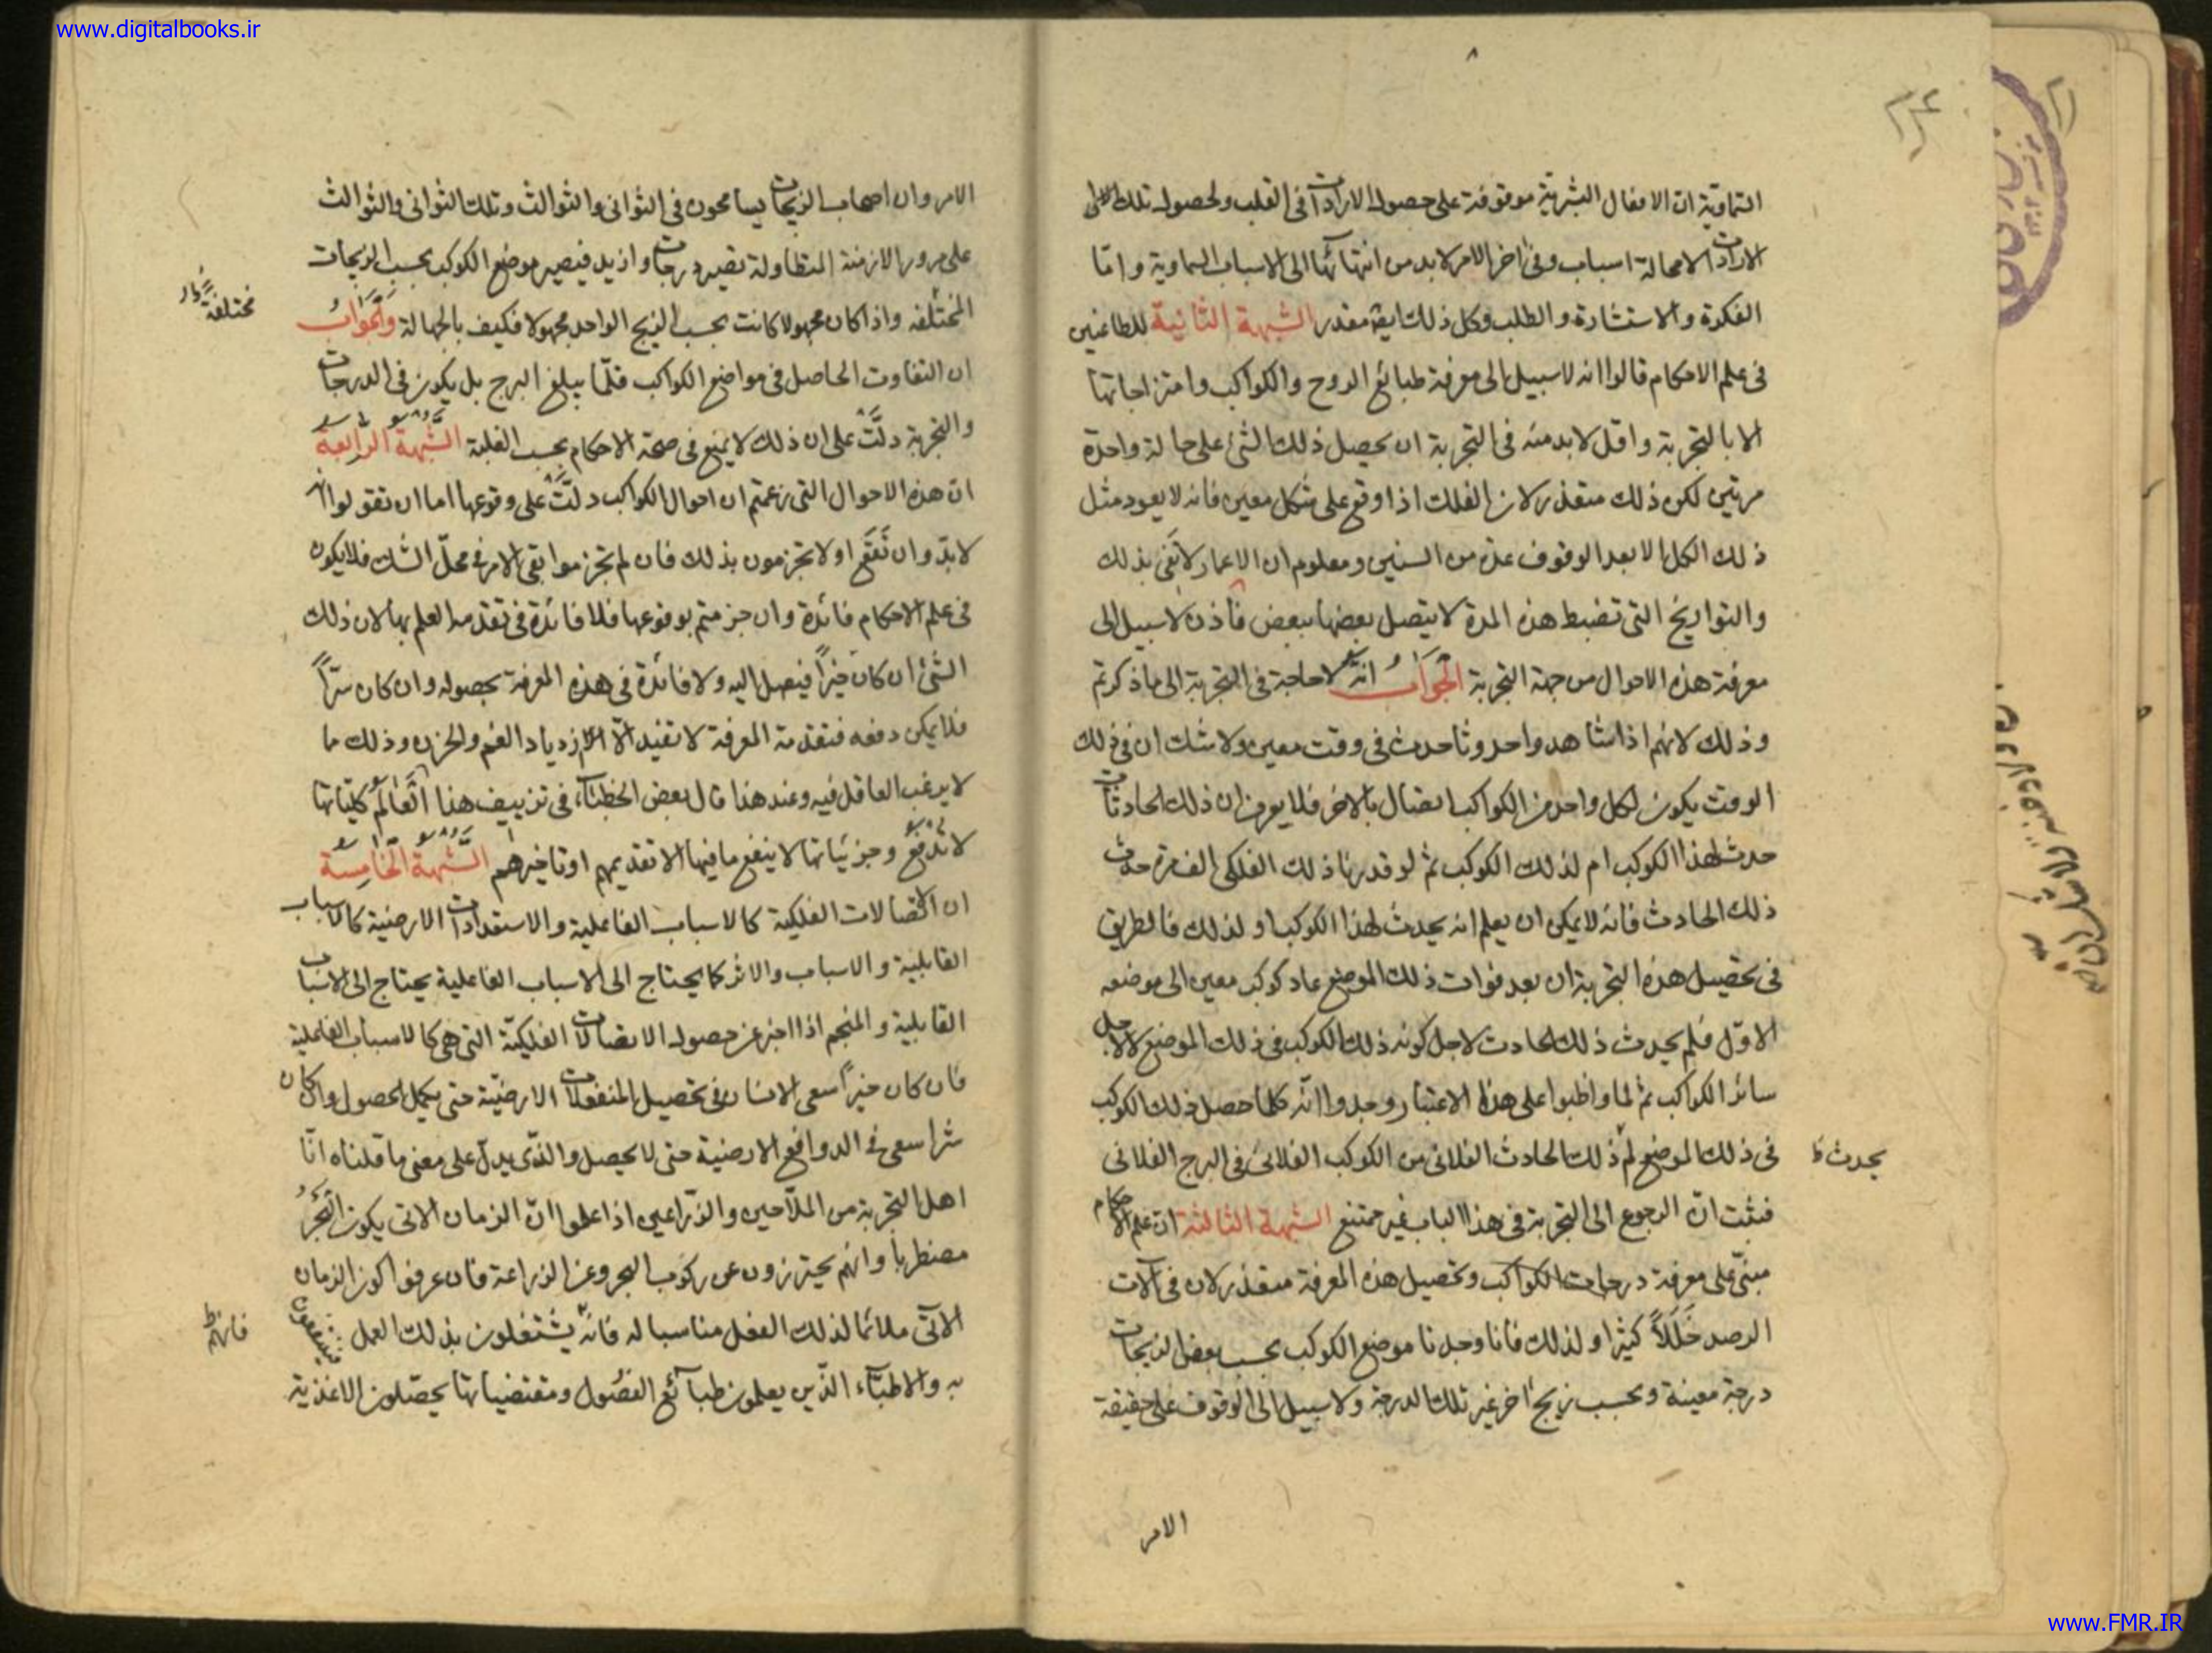 www.digitalbooks.ir
٨
السماوية ان الافعال البشرية موقوفة على حصول الارادات فى القلب ولحصول تلك
الارادات لامحالة اسباب وفى اخر الامر لابد من انتهائها الى الاسباب السماوية واما
الفكرة والاستشارة والطلب وكل ذلك ايضا مقدر الشبهة الثانية للطاعنين
فى علم الاحكام قالوا انه لاسبيل الى معرفة طبائع البروج والكواكب وامتزاجاتها
الا بالتجربة واقل لابد منه فى التجربة ان يحصل ذلك الشئ على حالة واحدة
مرتين لكن ذلك متعذر لان الفلك اذا وقع على شكل معين فانه لا يعود مثل
ذلك الكل الا بعد الوقوف عدة من السنين ومعلوم ان الاعمار لا تفى بذلك
والتواريخ التى تضبط هذه المدة لا يتصل بعضها ببعض فاذن لاسبيل الى
معرفة هذه الاحوال من جهة التجربة الجواب انه لاحاجة فى التجربة الى ماذكرتم
وذلك لانهم اذا شاهدوا حدوثا حدث فى وقت معين ولاشك ان فى ذلك
الوقت يكون لكل واحد من الكواكب اتصال بالاخر فلا يعرف ان ذلك الحادث
حدث لهذا الكوكب ام لذلك الكوكب ثم لو قدرنا ذلك الفلكى الف مرة حدث
ذلك الحادث فانه لا يمكن ان يعلم انه يحدث لهذا الكوكب او لذلك فالطريق
فى تحصيل هذه التجربة ان بعد فوات ذلك الموضع عاد كوكب معين الى موضعه
الاول فلم يحدث ذلك الحادث لاجل كونه ذلك الكوكب فى ذلك الموضع لا لاجل
سائر الكواكب ثم لما واظبوا على هذا الاعتبار وجدوا انه كلما حصل ذلك الكوكب
فى ذلك الموضع لم ذلك الحادث الفلانى من الكوكب الفلانى فى البرج الفلانى
يحدث
فثبت ان الرجوع الى التجربة فى هذا الباب غير ممتنع الشبهة الثالثة ان علم الاحكام
مبنى على معرفة درجات الكواكب وتحصيل هذه المعرفة متعذر لان فى آلات
الرصد خللاً كثيرا ولذلك فانا وجدنا موضع الكوكب بحسب بعض الزيجات
درجة معينة وبحسب زيج اخر غير تلك الدرجة ولاسبيل الى الوقوف على حقيقة
الامر
الامر وان اصحاب الزيجات يسامحون فى الثوانى والثوالث وتلك الثوانى والثوالث
على مرور الازمنة المتطاولة تصير درجات وازيد فيصير موضع الكوكب بحسب الزيجات
المختلفه واذا كان مجهولا كانت بحسب الزيج الواحد مجهولا فكيف بالجهالة والجواب
مختلفة
ان التفاوت الحاصل فى مواضع الكواكب قلما يبلغ البرج بل يكون فى الدرجات
والتجربة دلت على ان ذلك لا يمنع فى صحة الاحكام بحسب الغلبة الشبهة الرابعة
ان هذه الاحوال التى زعمتم ان احوال الكواكب دلت على وقوعها اما ان تقولوا انه
لابد وان تقع اولا تجزمون بذلك فان لم تجزموا بقى الامر فى محل الشك فلا يكون
فى علم الاحكام فائدة وان جزمتم بوقوعها فلا فائدة فى تقدمه العلم بها لان ذلك
الشئ ان كان خيراً فيصل اليه ولا فائدة فى هذه المعرفة بحصوله وان كان شراً
فلا يمكن دفعه فتقدمة المعرفة لا تفيد الا الازدياد الغم والحزن وذلك ما
لا يرغب العاقل فيه وعند هذا قال بعض الخطباء فى تزييف هذا العالم كلياتها
لا تدفع وجزئياتها لا ينفع مافيها الا تقديمهم او تاخيرهم الشبهة الخامسة
ان الاتصالات الفلكية كالاسباب الفاعلية والاستعدادات الارضية كالاسباب
القابلية والاسباب والاثر كما يحتاج الى الاسباب الفاعلية يحتاج الى الاسباب
القابلية والمنجم اذا اخبر عن حصول الاتصالات الفلكية التى هى كالاسباب الفاعلية
فان كان خيراً سعى الانسان فى تحصيل المنفعلات الارضية حتى يكمل الحصول وان كان
شرا سعى فى الدوافع الارضية حتى لا يحصل والذى يدل على معنى ما قلناه انا
اهل التجربة من الملاحين والزراعين اذا علموا ان الزمان الاتى يكون البحر
مضطربا وانهم يحترزون عن ركوب البحر وعن الزراعة فان عرفوا كون الزمان
الآتى ملائما لذلك الفعل مناسبا له فانه يشتغلون بذلك العمل
فانهم
به والاطباء الذين يعلمون طبائع الفصول ومقتضياتها يحصلون الاغذية
www.FMR.IR